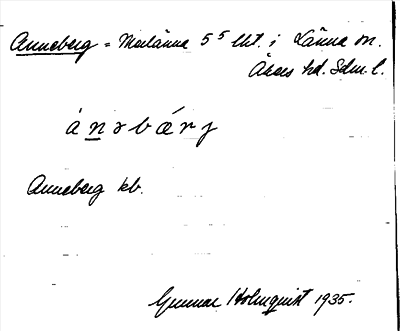 Anneberg = Marlänna 5⁵ lht. i Länna sn.
Åkers hd. Sdm. l.
ánəbærj
Anneberg kb.
Gunnar Holmquist 1935.